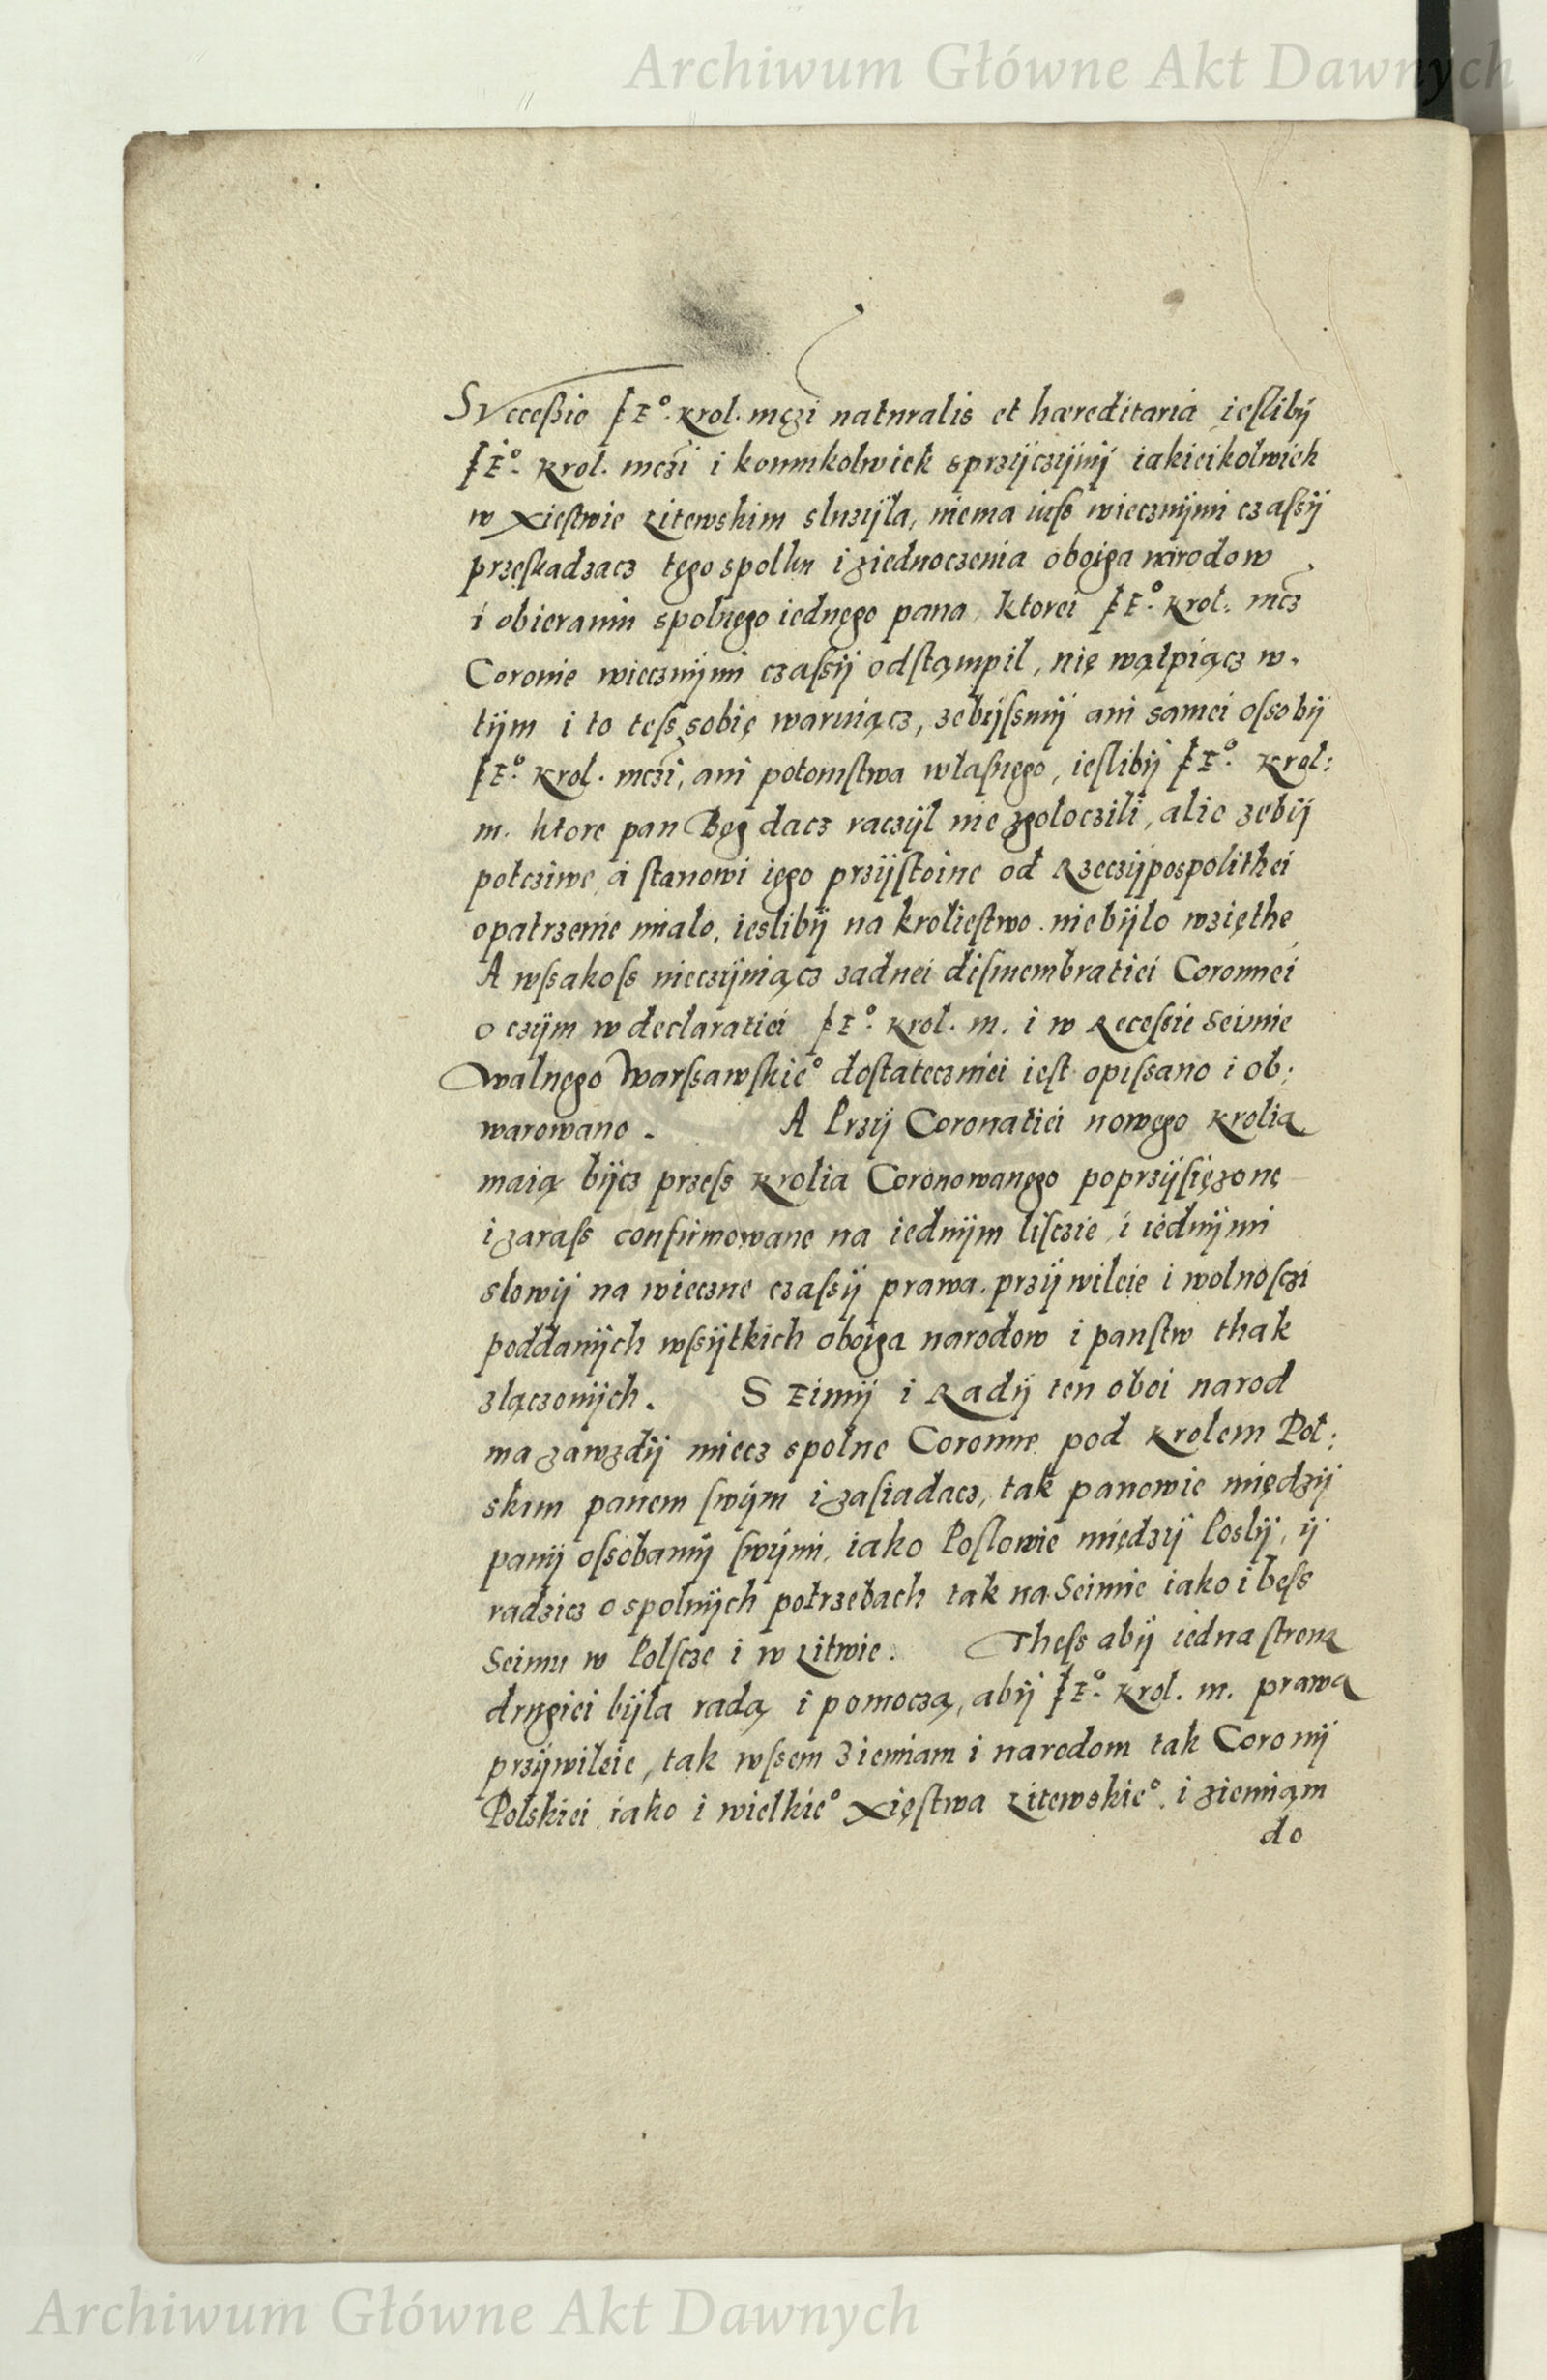 Archiwum Główne Akt Dawnych
Svccessio IEº. Krol. mczi naturalis et hæreditaria, iesliby
IEº. Krol. mczi i komukolwiek sprzÿczÿnÿ iakieikolwiek
w Xiestwie Litewskim sluzÿla, niema iuss wiecznÿmi czassÿ
przeskadzacz tego spolku i ziednoczenia oboiga narodow
i obieraniu spolnęgo iednęgo pana, ktorei IEº. Krol. mcz
Coronie wiecznÿmi czassÿ odstąmpil, nię wątpiącz w.
tÿm i to tess sobię waruiącz, zebÿssmÿ ani samei ossobÿ
IEº. Krol. mczi, ani potomstwa wlasnęgo, ieslibÿ IEº. Krol:
m. ktore pan Bog dacz raczÿl nie zgoloczili, alie zebÿ
potcziwe, a stanowi ięgo przÿstoine od Rzeczÿpospolithei
opatrzenie mialo, ieslibÿ na kroliestwo niebÿlo wzięthe,
A wssakoss nieczÿniącz zadnei dismembratiei Coronnei
o czÿm w declaratiei IEº. Krol. m. i w Recessie Seimie
Walnęgo Warssawskieº dostatecznei iest opissano i ob:
warowano. A Przÿ Coronatiei nowęgo Krolia
maią bÿcz przess Krolia Coronowanęgo poprzÿsięzonę
i zarass confirmowane na iednÿm lisczie, i iednÿmi
slowÿ na wieczne czassÿ prawa, przÿwileie i wolnosczi
poddanÿch wssÿtkich oboiga narodow i panstw thak
zlączonÿch. SEimÿ i Radÿ ten oboi narod
ma zawzdÿ miecz spolne Coronne pod Krolem Pol:
skim panem swÿm i zasiadacz, tak panowie międzÿ
panÿ ossobamÿ swÿmi, iako Poslowie międzÿ Poslÿ, ÿ
radzicz o spolnÿch potrzebach tak na Seimie iako i bess
Seimu w Polsczę i w Litwie. Thess abÿ iedna strona
drugiei bÿla radą i pomoczą, abÿ IEº. Krol. m. prawa
przÿwileie, tak wssem Ziemiam i narodom tak Coronÿ
Polskiei iako i wielkieº Xięstwa Litewskieº. i ziemiąm
do
Archiwum Główne Akt Dawnych